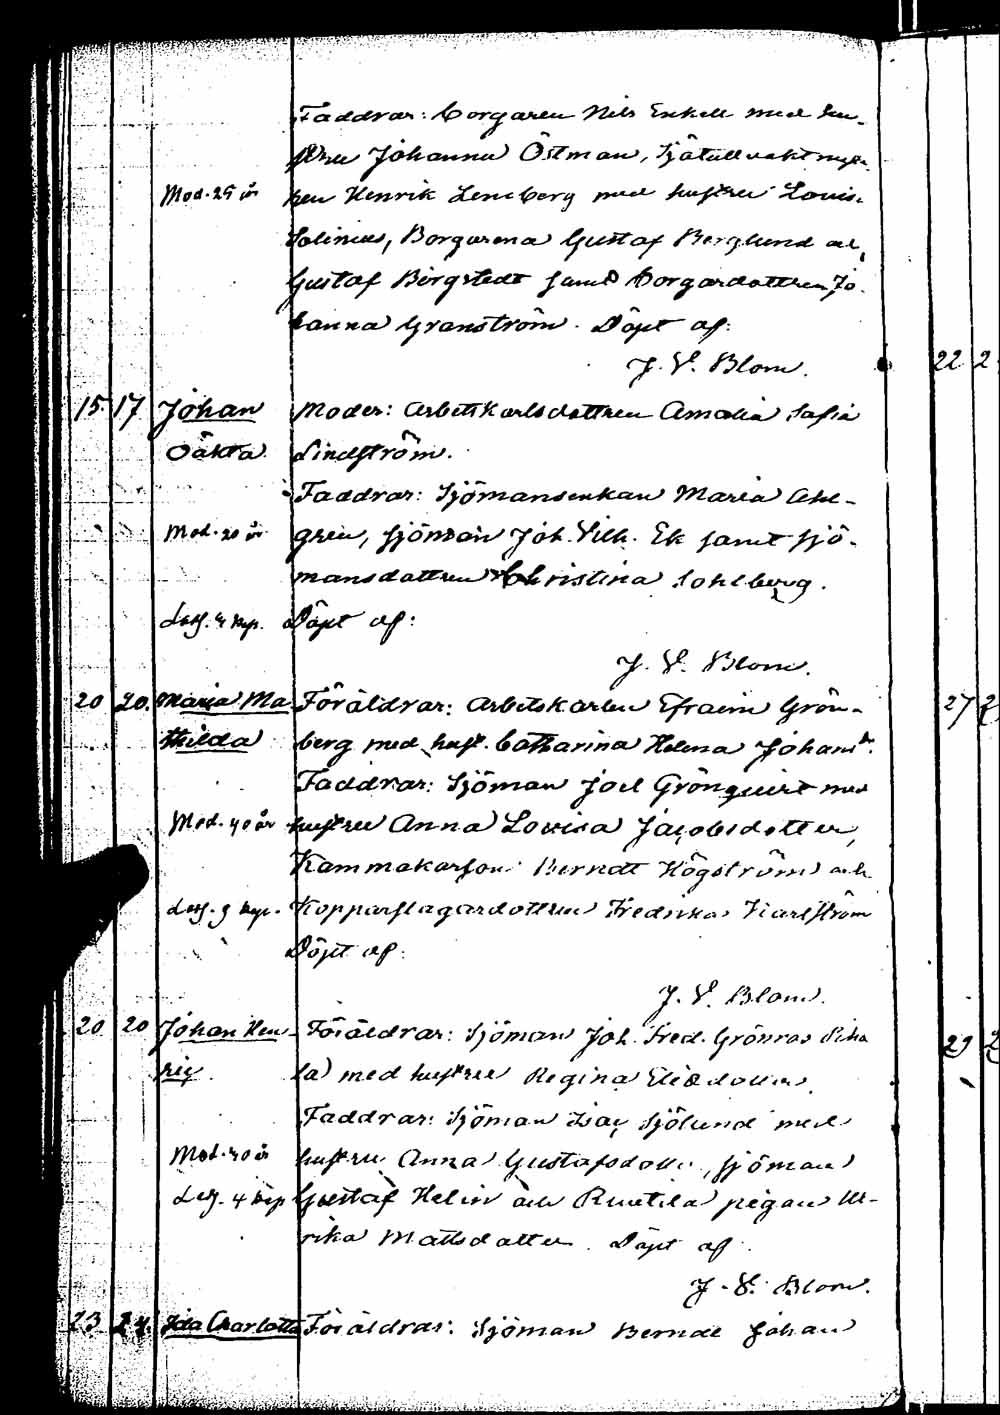 Faddrar: Borgaren Nils Enkell med hu-
stru Johanna Östman, Sjötullvaktmysta-
Mod. 25 år ren Henrik Leneberg med hustru Louis.
Solinus, Borgarena Gustaf Berglund och
Gustaf Bergstedt samt Borgardottren Jo-
hanna Granström. Döpt af:
J. V. Blom.
22
15. 17. Johan Moder: Arbetskarlsdottren Amalia Sofia
Oäkta. Lindström.
Faddrar: Sjömansenkan Maria Ahl-
Mod. 20 år gren, sjöman Joh. Vilh. Ek samt sjö-
mansdottren Christina Sohlberg.
Lösg. 4 kop. Döpt af:
J. V. Blom.
20 20. Maria Ma- Föräldrar: Arbetskarlen Efraim Grön-
27
thilda berg med hust. Catharina Helena Johansdr.
Faddrar: Sjöman Joel Grönquist med
Mod. 40 år hustru Anna Lovisa Jacobsdotter,
Kammakarson Berndt Högström och
Lösg. 9 kop. Kopparslagardottren Fredrika Karlström
Döpt af:
J. V. Blom.
20 20 Johan Hen- Föräldrar: Sjöman Joh. Fred. Grönros Piha
29
ric la) med hustru Regina Eliedotter.
Faddrar: Sjöman Isac Sjölund med
Mod. 40 år hustru Anna Gustafsdotter, sjöman
Lösg. 4 kop Gustaf Helin och Ruutila pigan Ul-
rika Mattsdotter. Döpt af:
J. V. Blom.
23 24. Ida Charlotta Föräldrar: Sjöman Berndt Johan